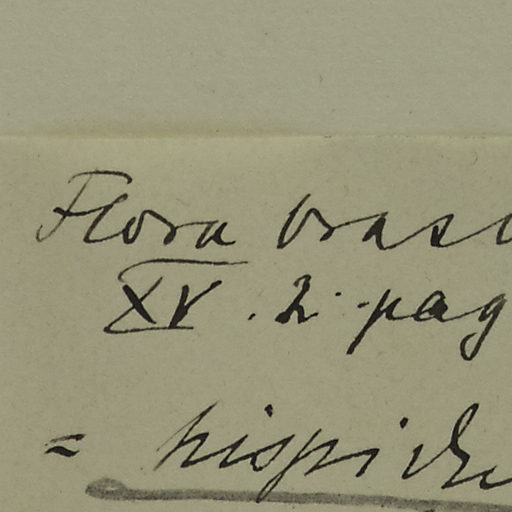 Flora bras
XV. 2. pag
= hispid